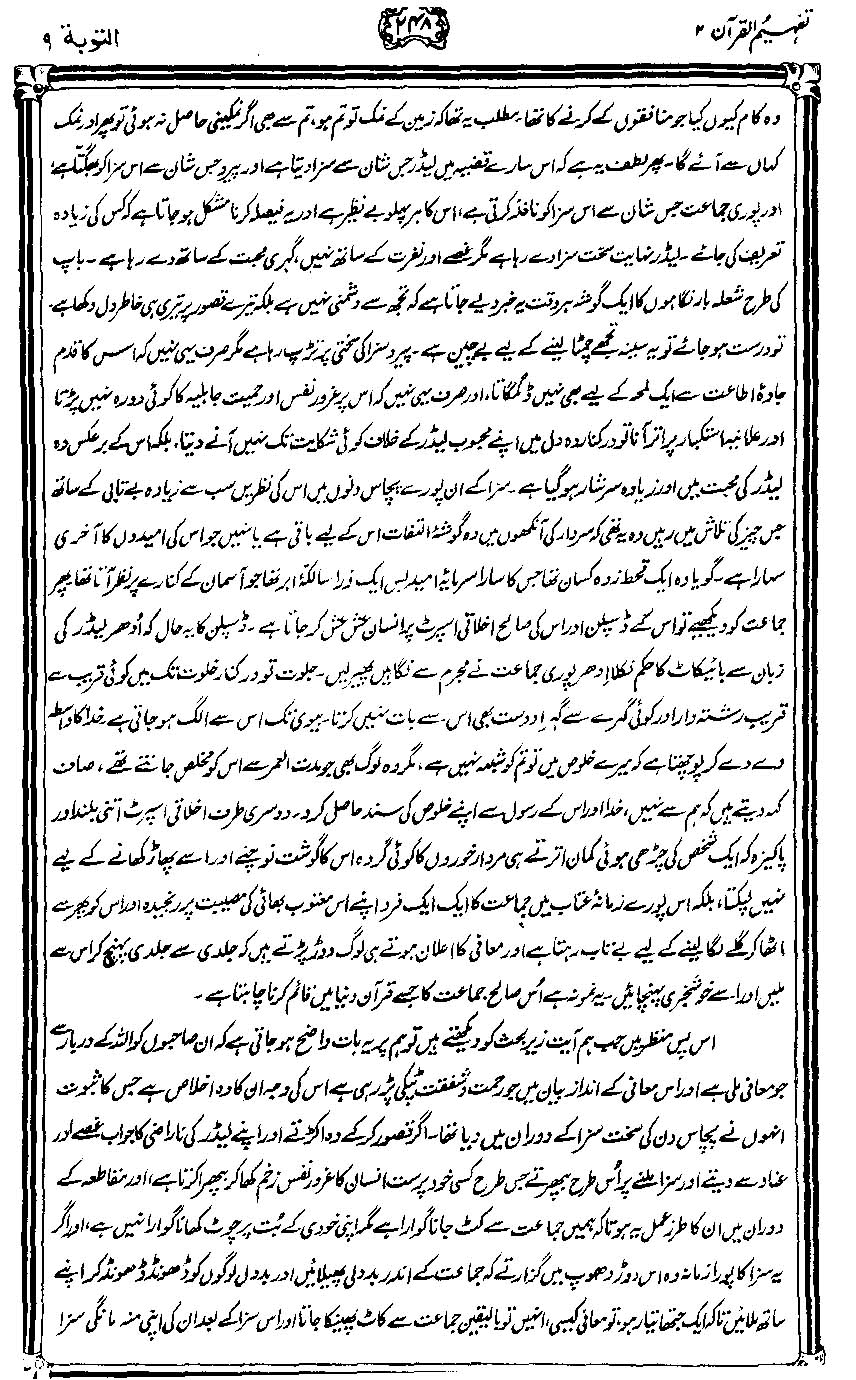 تفہیم القرآن ۲
۲۴۸
التوبۃ ۹
وہ کام کیوں کیا جو منافقوں کے کرنے کا تھا۔ مطلب یہ تھا کہ زمین کے نمک تو تم ہو، تم سے بھی اگر نمکینی حاصل نہ ہوئی تو پھر اور نمک
کہاں سے آئے گا۔ پھر لطف یہ ہے کہ اس سارے قضیہ میں لیڈر جس شان سے سزا دیتا ہے اور پیرو جس شان سے اس سزا کو بھگتتا ہے؛
اور پوری جماعت جس شان سے اس سزا کو نافذ کرتی ہے، اس کا ہر پہلو بے نظیر ہے اور یہ فیصلہ کرنا مشکل ہو جاتا ہے کہ کس کی زیادہ
تعریف کی جائے۔ لیڈر نہایت سخت سزا دے رہا ہے مگر غصے اور نفرت کے ساتھ نہیں، گہری محبت کے ساتھ دے رہا ہے۔ باپ
کی طرح شعلہ بار نگاہوں کا ایک گوشہ ہر وقت یہ خبر دیے جاتا ہے کہ تجھ سے دشمنی نہیں ہے بلکہ تیرے قصور پر تیری ہی خاطر دل دکھا ہے۔
تو درست ہو جائے تو یہ سینہ تجھے چمٹا لینے کے لیے بے چین ہے۔ پیرو سزا کی سختی پر تڑپ رہا ہے مگر صرف یہی نہیں کہ اس کا قدم
جادۂ اطاعت سے ایک لمحہ کے لیے بھی نہیں ڈگمگاتا، اور صرف یہی نہیں کہ اس پر غرور نفس اور حمیت جاہلیہ کا کوئی دورہ نہیں پڑتا
اور علانیہ استکبار پر اتر آنا تو درکنار وہ دل میں اپنے محبوب لیڈر کے خلاف کوئی شکایت تک نہیں آنے دیتا، بلکہ اس کے برعکس وہ
لیڈر کی محبت میں اور زیادہ سرشار ہو گیا ہے۔ سزا کے ان پورے پچاس دنوں میں اس کی نظریں سب سے زیادہ بے تابی کے ساتھ
جس چیز کی تلاش میں رہیں وہ یہ تھی کہ سردار کی آنکھوں میں وہ گوشۂ التفات اس کے لیے باقی ہے یا نہیں جو اس کی امیدوں کا آخری
سہارا ہے۔ گویا وہ ایک قحط زدہ کسان تھا جس کا سارا سرمایۂ امید بس ایک ذرا سا لکۂ ابر تھا جو آسمان کے کنارے پر نظر آتا تھا۔ پھر
جماعت کو دیکھیے تو اس کے ڈسپلن اور اس کی صالح اخلاقی اسپرٹ پر انسان عش عش کر جاتا ہے۔ ڈسپلن کا یہ حال کہ اُدھر لیڈر کی
زبان سے بائیکاٹ کا حکم نکلا اِدھر پوری جماعت نے مجرم سے نگاہیں پھیر لیں۔ جلوت تو درکنار خلوت تک میں کوئی قریب سے
قریب رشتہ دار اور کوئی گہرے سے گہرا دوست بھی اس سے بات نہیں کرتا۔ بیوی تک اس سے الگ ہو جاتی ہے۔ خدا کا واسطہ
دے دے کر پوچھتا ہے کہ میرے خلوص میں تو تم کو شبہ نہیں ہے، مگر وہ لوگ بھی جو مدت العمر سے اس کو مخلص جانتے تھے، صاف
کہہ دیتے ہیں کہ ہم سے نہیں، خدا اور اس کے رسول سے اپنے خلوص کی سند حاصل کرو۔ دوسری طرف اخلاقی اسپرٹ اتنی بلند اور
پاکیزہ کہ ایک شخص کی چڑھی ہوئی کمان اترتے ہی مردار خوروں کا کوئی گروہ اس کا گوشت نوچنے اور اسے پھاڑ کھانے کے لیے
نہیں لپکتا، بلکہ اس پورے زمانۂ عتاب میں جماعت کا ایک ایک فرد اپنے اس معتوب بھائی کی مصیبت پر رنجیدہ اور اس کو پھر سے
اٹھا کر گلے لگا لینے کے لیے بے تاب رہتا ہے اور معافی کا اعلان ہوتے ہی لوگ دوڑ پڑتے ہیں کہ جلدی سے جلدی پہنچ کر اس سے
ملیں اور اسے خوشخبری پہنچائیں۔ یہ نمونہ ہے اُس صالح جماعت کا جسے قرآن دنیا میں قائم کرنا چاہتا ہے۔
اس پس منظر میں جب ہم آیت زیر بحث کو دیکھتے ہیں تو ہم پر یہ بات واضح ہو جاتی ہے کہ ان صاحبوں کو اللہ کے دربار سے
جو معافی ملی ہے اور اس معافی کے انداز بیان میں جو رحمت و شفقت ٹپکی پڑ رہی ہے اس کی وجہ ان کا وہ اخلاص ہے جس کا ثبوت
انہوں نے پچاس دن کی سخت سزا کے دوران میں دیا تھا۔ اگر قصور کر کے وہ اکڑتے اور اپنے لیڈر کی ناراضی کا جواب غصے اور
عناد سے دیتے اور سزا ملنے پر اُس طرح بپھرتے جس طرح کسی خود پرست انسان کا غرور نفس زخم کھا کر بپھرا کرتا ہے، اور مقاطعہ کے
دوران میں ان کا طرز عمل یہ ہوتا کہ ہمیں جماعت سے کٹ جانا گوارا ہے مگر اپنی خودی کے بُت پر چوٹ کھانا گوارا نہیں ہے، اور اگر
یہ سزا کا پورا زمانہ وہ اس دوڑ دھوپ میں گزارتے کہ جماعت کے اندر بددلی پھیلائیں اور بددل لوگوں کو ڈھونڈ ڈھونڈ کر اپنے
ساتھ ملائیں تاکہ ایک جتھا تیار ہو، تو معافی کیسی، انہیں تو بالیقین جماعت سے کاٹ پھینکا جاتا اور اس سزا کے بعد ان کی اپنی منہ مانگی سزا